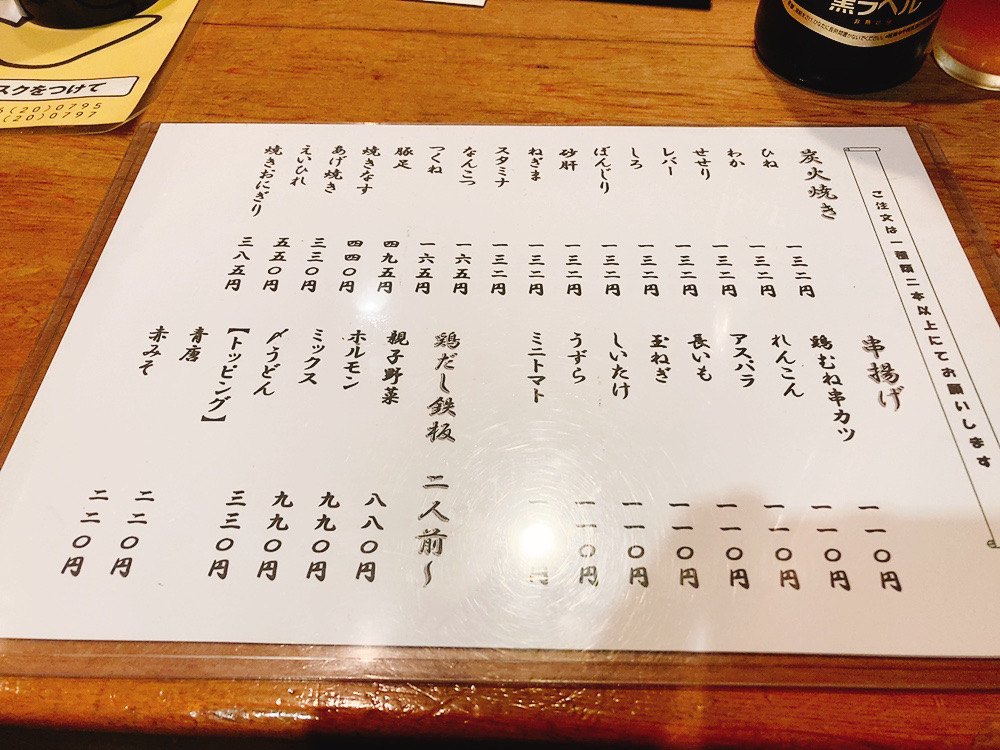 ご注文は一種類二本以上にてお願いします
炭火焼き
ひね 一三二円
わか 一三二円
せせり 一三二円
レバー 一三二円
しろ 一三二円
ぼんじり 一三二円
砂肝 一三二円
ねぎま 一三二円
スタミナ 一三二円
なんこつ 一六五円
つくね 一六五円
豚足 四九五円
焼きなす 四四〇円
あげ焼き 三三〇円
えいひれ 五五〇円
焼きおにぎり 三八五円
串揚げ
鶏むね串カツ 一一〇円
れんこん 一一〇円
アスパラ 一一〇円
長いも 一一〇円
玉ねぎ 一一〇円
しいたけ 一一〇円
うずら 一一〇円
ミニトマト 円
鶏だし鉄板 二人前〜
親子野菜 八八〇円
ホルモン 九九〇円
ミックス 九九〇円
〆うどん 三三〇円
【トッピング】
青唐 二二〇円
赤みそ 二二〇円
スクをつけて
(20)0795
(20)0797
黒ラベル